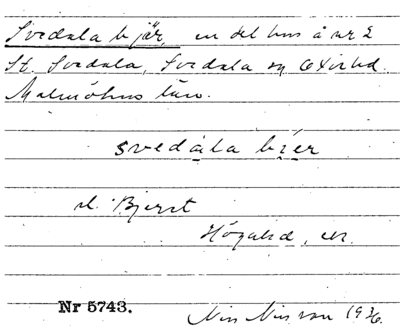 Svedala bjär, en del hus å nr 2
St. Svedala, Svedala sn Oxie hd.
Malmöhus län.
svedala bïer
el. Bjerst
Högalid, en.
Nr 5743. Nils Nilsson 1936.